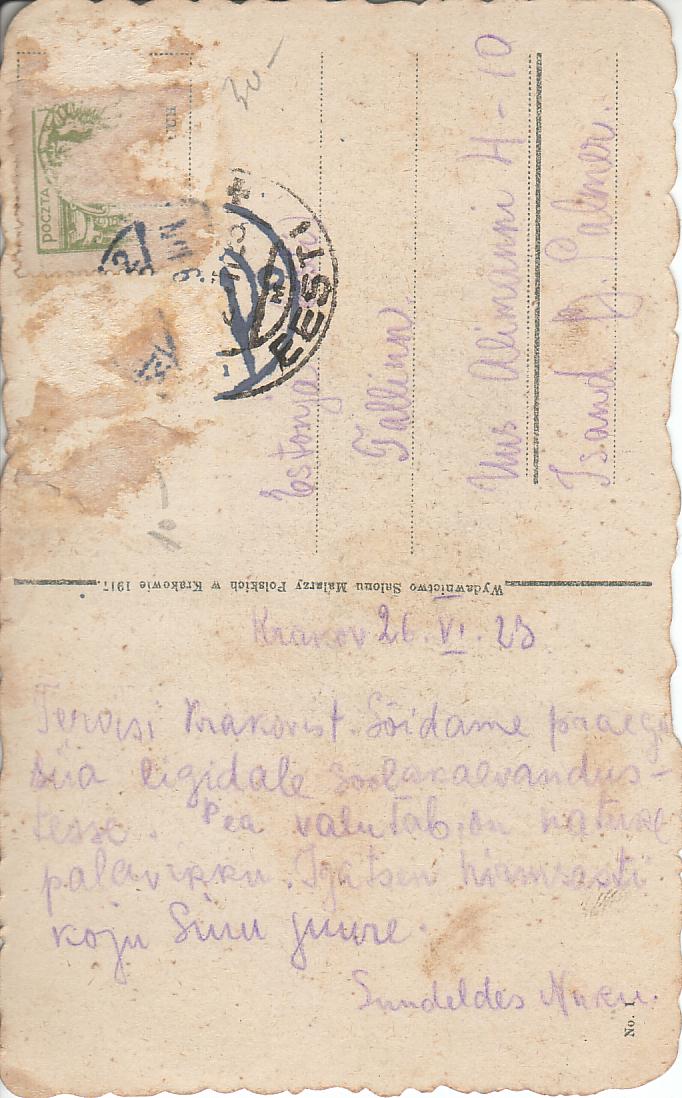 POCZTA
EESTI
30-
10-
Estonja
Tallinn.
Uus Alimanni 4-10
Isand Palmer.
Wydawnictwo Salonu Malarzy Polskich w Krakowie 1917.
Krakov 26. VI. 23.
Tervisi Krakovist. Sõidame praegu
siia ligidale soolakaevandus-
tesse. Pea valutab, on natuke
palavikku. Igatsen hirmsasti
koju Sinu juure.
Suudeldes Nuku.
No. 1